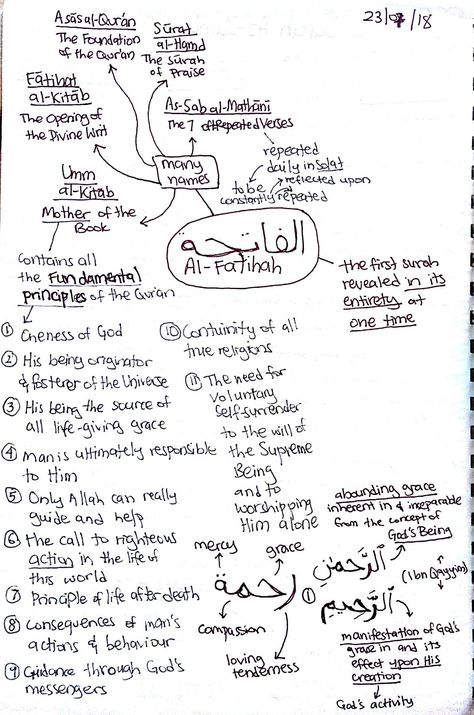 23/07/18
Asās al-Qur'ān
The Foundation
of the Qur'ān
Sūrat
al-Hamd
The Sūrah
of Praise
Fātihat
al-Kitāb
The Opening of
the Divine Writ
As-Sab al-Mathānī
The 7 oft Repeated Verses
repeated
daily in Solat
reflected upon
to be
constantly repeated
many
names
Umm
al-Kitāb
Mother of the
Book
الفاتحة
Al-Fātihah
the first surah
revealed in its
entirety at
one time
Contains all
the fundamental
principles of the Qur'ān
① Oneness of God
② His being originator
& fosterer of the Universe
③ His being the source of
all life-giving grace
④ Man is ultimately responsible
to Him
⑤ Only Allah can really
guide and help
⑥ the call to righteous
action in the life of
this world
⑦ Principle of life after death
⑧ Consequences of man's
actions & behaviour
⑨ Guidance through God's
messengers
⑩ Contuinity of all
true religions
⑪ The need for
voluntary
self-surrender
to the will of
the Supreme
Being
and to
worshipping
Him alone
mercy
grace
رحمة
compassion
loving
tenderness
abounding grace
inherent in & inseparable
from the concept of
God's Being
①
الرَّحْمٰنِ
الرَّحِيمِ
(Ibn Qayyim)
manifestation of God's
grace in and its
effect upon His
creation
God's activity